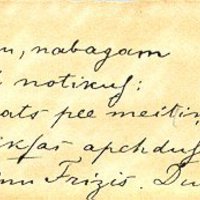 nabagam
notikuſ:
ats pee meitiņ
apchduſ
Frizis. Du